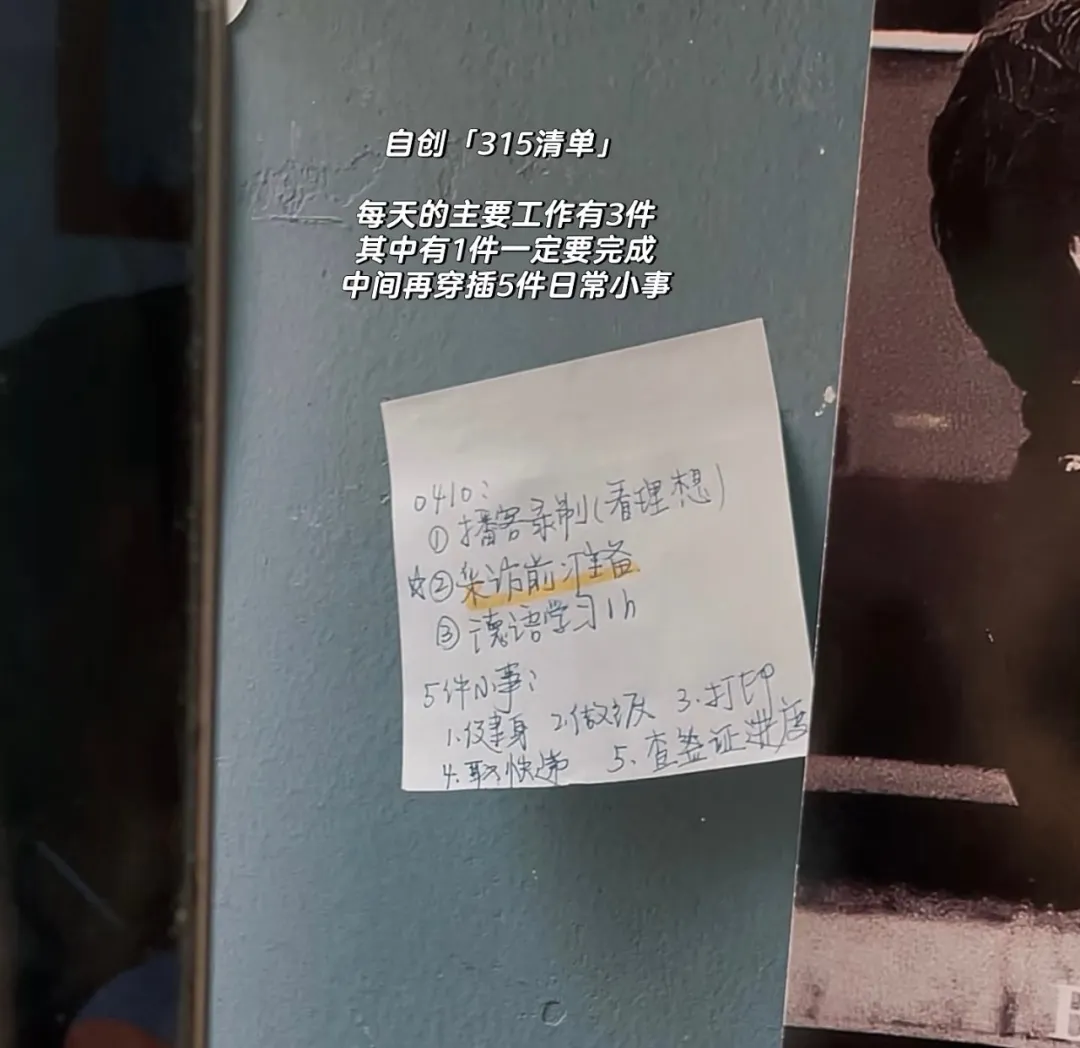 自创「315清单」
每天的主要工作有3件
其中有1件一定要完成
中间再穿插5件日常小事
0410:
①播客录制(看理想)
☆②采访前准备
③德语学习1h
5件小事:
1.健身 2.做饭 3.打印
4.取快递 5.查签证进度